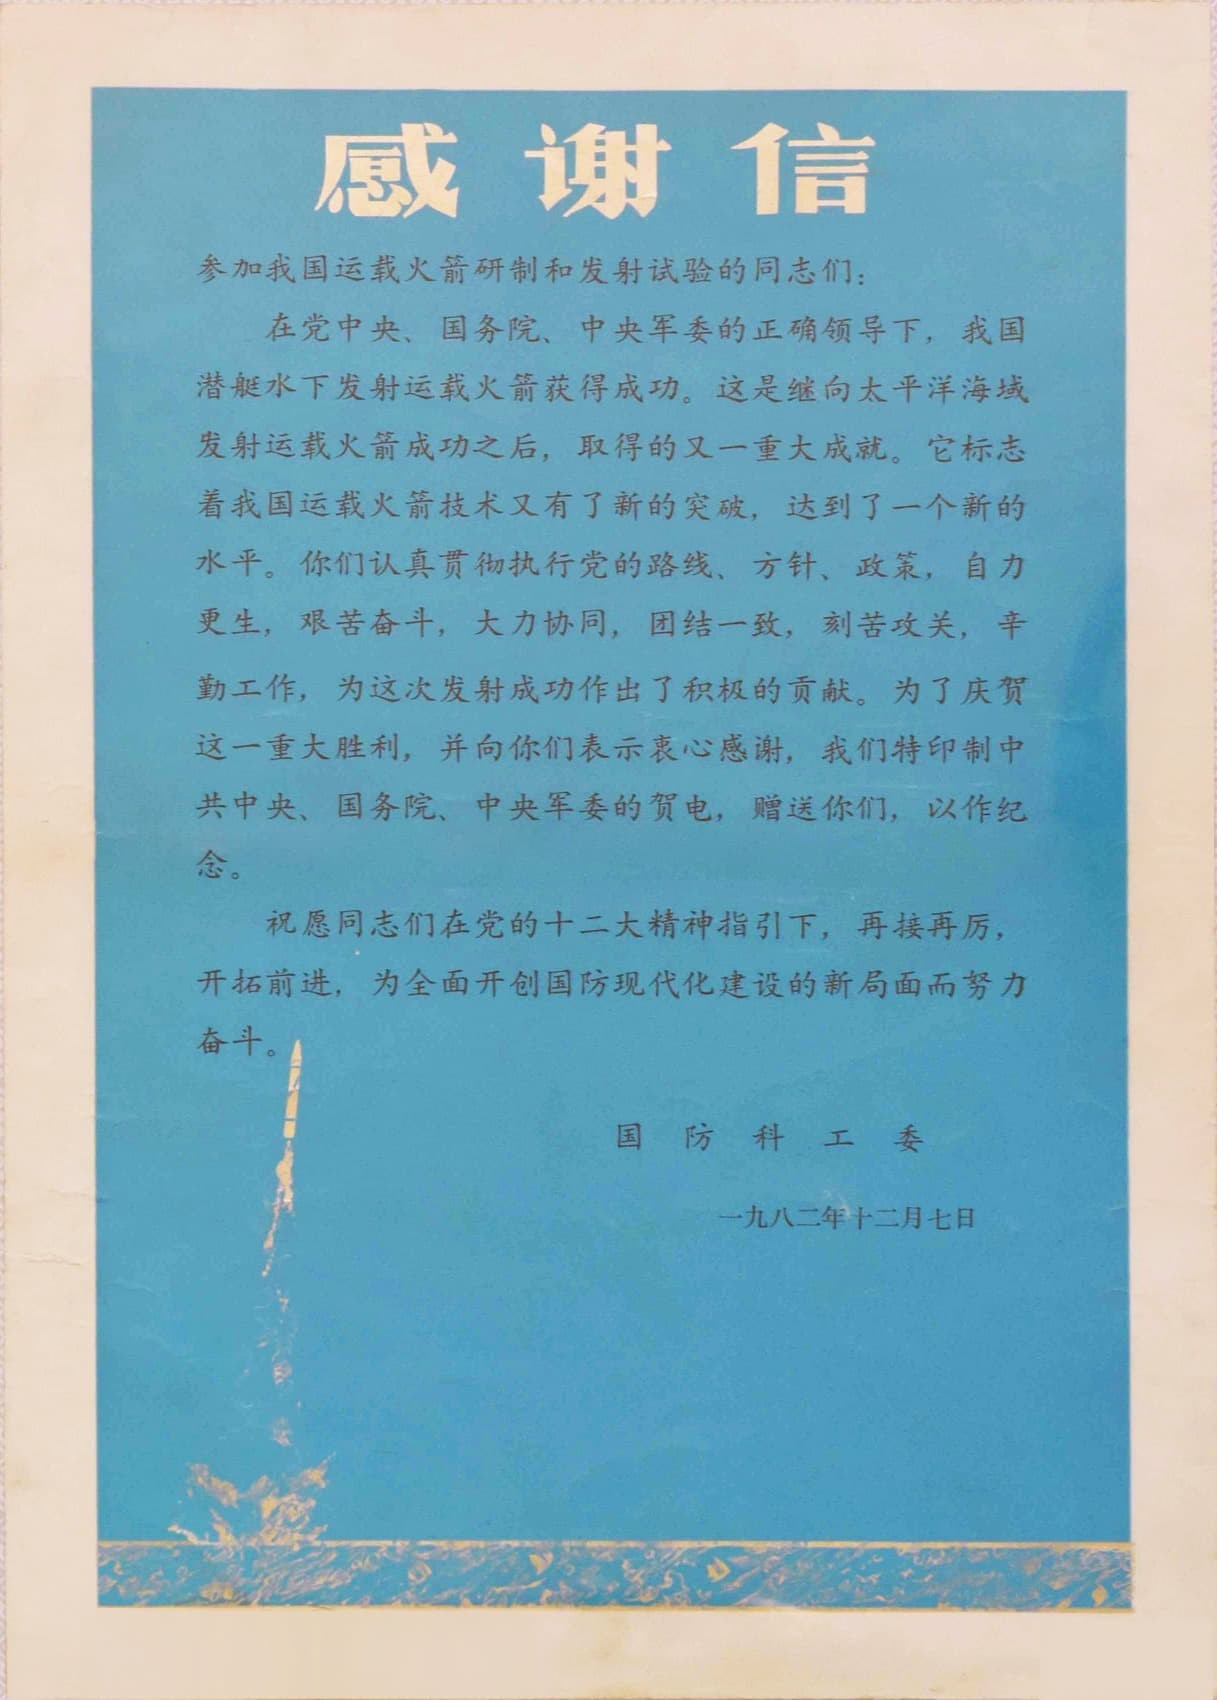 感谢信
参加我国运载火箭研制和发射试验的同志们：
在党中央、国务院、中央军委的正确领导下，我国
潜艇水下发射运载火箭获得成功。这是继向太平洋海域
发射运载火箭成功之后，取得的又一重大成就。它标志
着我国运载火箭技术又有了新的突破，达到了一个新的
水平。你们认真贯彻执行党的路线、方针、政策，自力
更生，艰苦奋斗，大力协同，团结一致，刻苦攻关，辛
勤工作，为这次发射成功作出了积极的贡献。为了庆贺
这一重大胜利，并向你们表示衷心感谢，我们特印制中
共中央、国务院、中央军委的贺电，赠送你们，以作纪
念。
祝愿同志们在党的十二大精神指引下，再接再厉，
开拓前进，为全面开创国防现代化建设的新局面而努力
奋斗。
国防科工委
一九八二年十二月七日